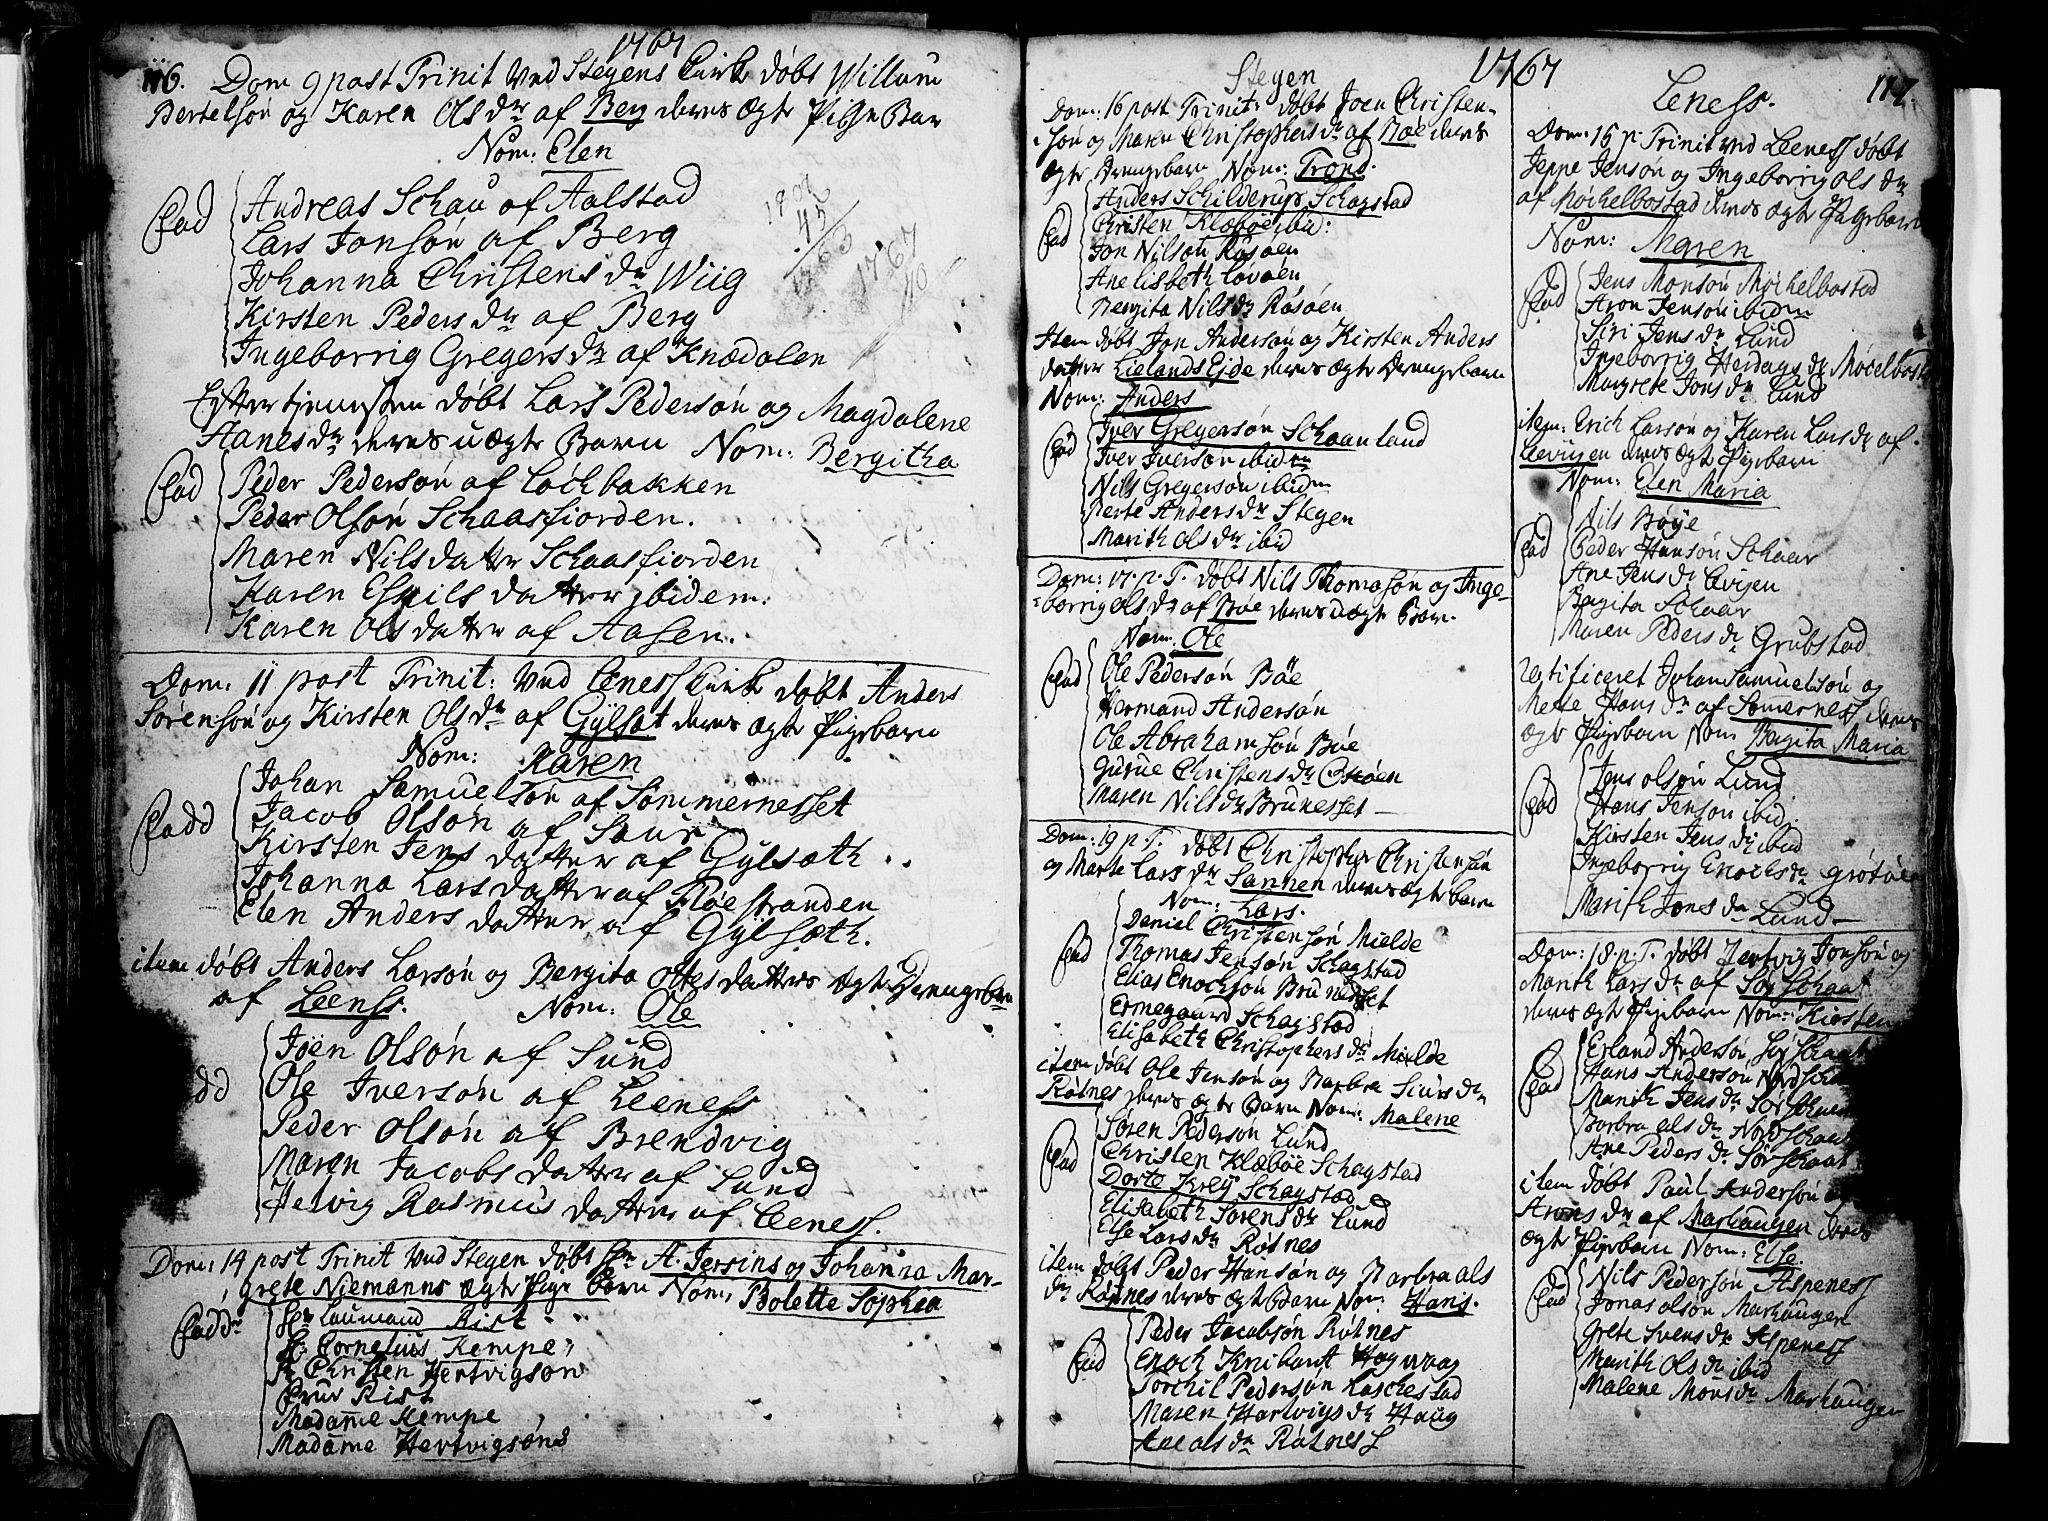 1767
116. Dom 9 post Trinit Ved Stegens Kirk døbt Willum
Bertelsøn og Karen Ols dr af Berg deres ægte Pige Bar
Nom: Elen
Fad
Andreas Schau af Aalstad
Lars Jonsøn af Berg
Johanna Christens dr Wiig
Kirsten Peders dr af Berg
Ingeborrig Gregers dr af Knædalen
1808
45
1763
1767
40
Efter tjenesten døbt Lars Pedersøn og Magdalene
Hanes dr deres uægte Barn Nom: Bergitha
Fad
Peder Pedersøn af Løchbakken
Peder Olsøn Schaasfiorden.
Maren Nilsdatter Schaasfiorden
Karen Eskils datter ibidem:
Karen Olsdatter af Aasen.
Dom: 11 post Trinit: Ved Leeness Kirk døbt Anders
Sørensøn og Kirsten Ols dr af Gylset deres ægte Pigebarn
Nom: Karen
Fadd
Johan Samuelsøn af Sommernesset
Jacob Olsøn af Saur
Kirsten Jens datter af Gylsæth
Johanna Larsdatter af Røestranden
Elen Anders datter af Gylsæth.
item døbt Anders Larsøn og Bergita Ottesdatters ægte Drengebarn
af Leeness. Nom: Ole
Joen Olsøn af Sund
Ole Iversøn af Leeness
Peder Olsøn af Brendvig
Maren Jacobs datter af Sund
Helvig Rasmus datter af Leeness.
Dom: 14 post Trinit Ved Stegen døbt Hr A. Jersins og Johanna Mar-
grete Niemanns ægte Pige barn Nom: Bolette Sophia
Fadd
Hr Laumand Rist
Hr Cornelius Kempe
Hr Christen Hertvigson
Frue Rist
Madame Kempe
Madame Hertvigsøns
1767
Stegen
Dom: 16 post Trinit: døbt Joen Christen-
søn og Maren Christophers dr af Bøe deres
ægte Drengebarn Nom: Trond.
Fad
Anders Schilderup Schagstad
Christen Klæbøe ibid:
Jon Nilsøn Røsøen
Ane lisbeth Lovøen
Bergita Nils dr Røsøen
Item døbt Jon Andersøn og Kirsten Anders
datter Lielands Ejde deres ægte Drengebarn
Nom: Anders
Fad
Iver Gregersøn Schaanland
Iver Iversøn ibidem
Nils Gregersøn ibidm
Berte Anders dr Stegen
Marith Ols dr ibid
Dom: 17. p. T. døbt Nils Thomasøn og Inge-
borrig Ols dr af Bøe deres uægte Barn.
Nom: Ole
Fad
Ole Pedersøn Bøe
Hermand Andersøn
Ole Abrahamsøn Bøe
Gurue Christens dr
Maren Nils dr Brunesset
Dom: 19 p. T. døbt Christopher Christensøn
og Marte Lars dr Sannen deres ægte barn
Nom: Lars.
Fad
Daniel Christensøn Mielde
Thomas Jensøn Schagstad
Elias Enochsøn Brunesset
Ermegaard Schagstad
Elisabeth Christophers dr Mielde
item døbt Ole Jensøn og Barbra Siurs dr
Røtnes deres ægte Barn Nom: Malene
Fad
Søren Pedersøn Lund
Christen Klæbøe Schagstad
Dorte Krey Schagstad
Elisabeth Sørens dr Lund
Else Lars dr Røtnes
item døbt Peder Hansøn og Barbra Ols
dr Røtnes deres ægte Barn Nom. Hans.
Fad
Peder Jacobsøn Røtnes
Enoch Hogwaag
Torchil Pedersøn Laschestad
Maren Hartvigs dr Haug
Ane Ols dr Røtness
Leness.
117.
Dom: 15 p. Trinit ved Leeness døbt
Jeppe Jensøn og Ingeborrig Ols dr
af Møchelbostad deres ægte Pigebarn
Nom: Maren
Fad
Jens Monsøn Møchelbostad
Aron Jensøn ibidm
Siri Jens dr Lund
Ingeborrig Herdags dr Møcelbost
Margrete Jons dr Lund
item: Erich Larsøn og Karen Lars dr af
Leevigen deres ægte Pigebarn
Nom: Elen Maria
Fad
Nils Bøye
Peder Hansøn Schaar
Ane Jens dr Levigen
Bergita Schaar
Maren Peders dr Grubstad
Johan Samuelsøn og
Mette Hans dr af Somernes deres
ægte Pigebarn Nom. Bergita Maria
Fad
Jens Olsøn Lund
Hans Jensøn ibid:
Kirsten Jens dr ibid
Ingeborrig Enochs dr Grøtøen
Marith Jons dr Lund
Dom: 18. p. T. døbt Hertvig Jonsøn og
Marith Lars dr af Sør Schaat
deres ægte Pigebarn Nom: Kirsten
Fad
Erland Andersøn Sør Schaat
Hans Andersøn Nord
Marith Jens dr Sør
Barbra Ols dr Nord Schaat
Ane Peders dr Sør Schaat
item døbt Paul Andersøn
Arons dr af Marhaugen deres
ægte Pigebarn Nom: Else.
Fad
Nils Pedersøn Aspeness
Jonas Olsøn Marhaugen
Grete Svens dr Aspeness
Marith Ols dr ibid
Malene Mons dr Marhaugen